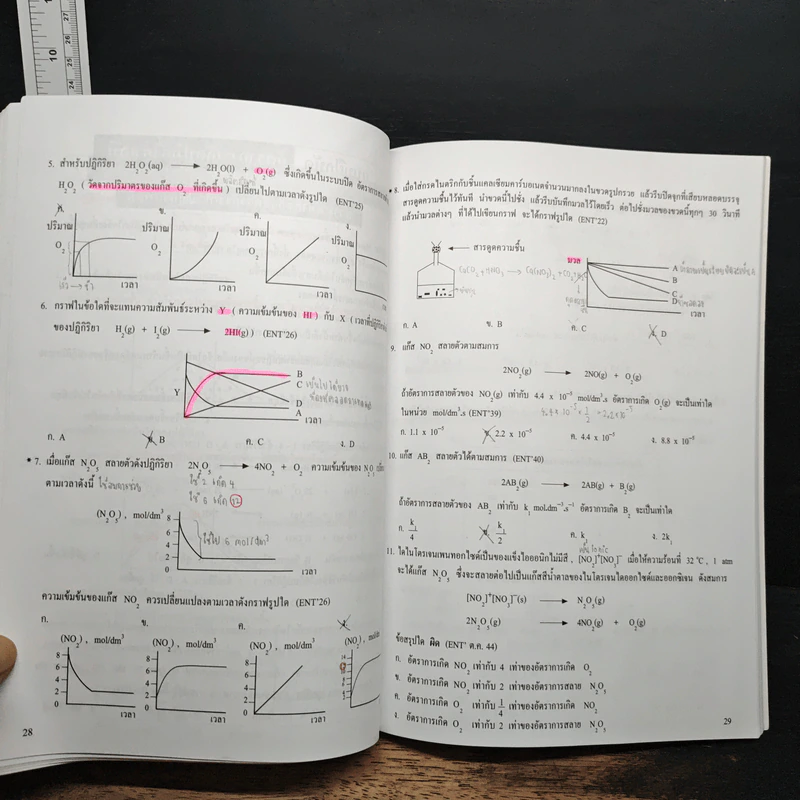 5. สำหรับปฏิกิริยา 2H2O2(aq) ⟶ 2H2O(l) + O2(g) ซึ่งเกิดขึ้นในระบบปิด
H2O2 (วัดจากปริมาตรของแก๊ส O2 ที่เกิดขึ้น) เปลี่ยนไปตามเวลาดังรูปใด (ENT'25)
ก. ข. ค. ง.
ปริมาณ ปริมาณ ปริมาณ ปริมาณ
O2 O2 O2 O2
เวลา เวลา เวลา
6. กราฟในข้อใดที่จะแทนความสัมพันธ์ระหว่าง Y (ความเข้มข้นของ HI) กับ X
ของปฏิกิริยา H2(g) + I2(g) ⟶ 2HI(g)) (ENT'26)
Y B
C
D
A
เวลา
ก. A ข. B ค. C ง. D
• 7. เมื่อแก๊ส N2O5 สลายตัวดังปฏิกิริยา 2N2O5 ⟶ 4NO2 + O2 ความเข้มข้นของ N2O5
ตามเวลาดังนี้
ใช้ 2 เกิด 4
ใช้ 6 เกิด 12
(N2O5), mol/dm3
8
6
4
2
0
ใช้ไป 6 mol/dm3
เวลา
ความเข้มข้นของแก๊ส NO2 ควรเปลี่ยนแปลงตามเวลาดังกราฟรูปใด (ENT'26)
ก. ข. ค.
(NO2), mol/dm3 (NO2), mol/dm3 (NO2), mol/dm3
8 8 8
6 6 6
4 4 4
2 2 2
0 0 0
เวลา เวลา เวลา
28
• 8. เมื่อใส่กรดไนตริกกับชิ้นแคลเซียมคาร์บอเนตจำนวนมากลงในขวดรูปกรวย แล้วรีบปิดจุกที่เสียบหลอดบรรจุ
สารดูดความชื้นไว้ทันที นำขวดนี้ไปชั่ง แล้วรีบบันทึกมวลไว้โดยเร็ว ต่อไปชั่งมวลของขวดนี้ทุกๆ 30 วินาที
แล้วนำมวลต่างๆ ที่ได้ไปเขียนกราฟ จะได้กราฟรูปใด (ENT'22)
สารดูดความชื้น
มวล
A
B
C
D
เวลา
ก. A ข. B ค. C ง. D
9. แก๊ส NO2 สลายตัวตามสมการ
2NO2(g) ⟶ 2NO(g) + O2(g)
ถ้าอัตราการสลายตัวของ NO2(g) เท่ากับ 4.4 x 10-5 mol/dm3.s อัตราการเกิด O2(g) จะเป็นเท่าใด
ในหน่วย mol/dm3.s (ENT'39)
ก. 1.1 x 10-5 ข. 2.2 x 10-5 ค. 4.4 x 10-5 ง. 8.8 x 10-5
10. แก๊ส AB2 สลายตัวได้ตามสมการ (ENT'40)
2AB2(g) ⟶ 2AB(g) + B2(g)
ถ้าอัตราการสลายตัวของ AB2 เท่ากับ k1 mol.dm-3.s-1 อัตราการเกิด B2 จะเป็นเท่าใด
ก. k1/4 ข. k1/2 ค. k1 ง. 2k1
11. ไดไนโตรเจนเพนทอกไซด์เป็นของแข็งไอออนิกไม่มีสี, [NO2]+[NO3]- เมื่อให้ความร้อนที่ 32 °C, 1 atm
จะได้แก๊ส N2O5 ซึ่งจะสลายต่อไปเป็นแก๊สสีน้ำตาลของไนโตรเจนไดออกไซด์และออกซิเจน ดังสมการ
[NO2]+[NO3]-(s) ⟶ N2O5(g)
2N2O5(g) ⟶ 4NO2(g) + O2(g)
ข้อสรุปใด ผิด (ENT' ต.ค. 44)
ก. อัตราการเกิด NO2 เท่ากับ 4 เท่าของอัตราการเกิด O2
ข. อัตราการเกิด NO2 เท่ากับ 2 เท่าของอัตราการสลาย N2O5
ค. อัตราการเกิด O2 เท่ากับ 1/4 เท่าของอัตราการเกิด NO2
ง. อัตราการเกิด O2 เท่ากับ 2 เท่าของอัตราการสลาย N2O5
29